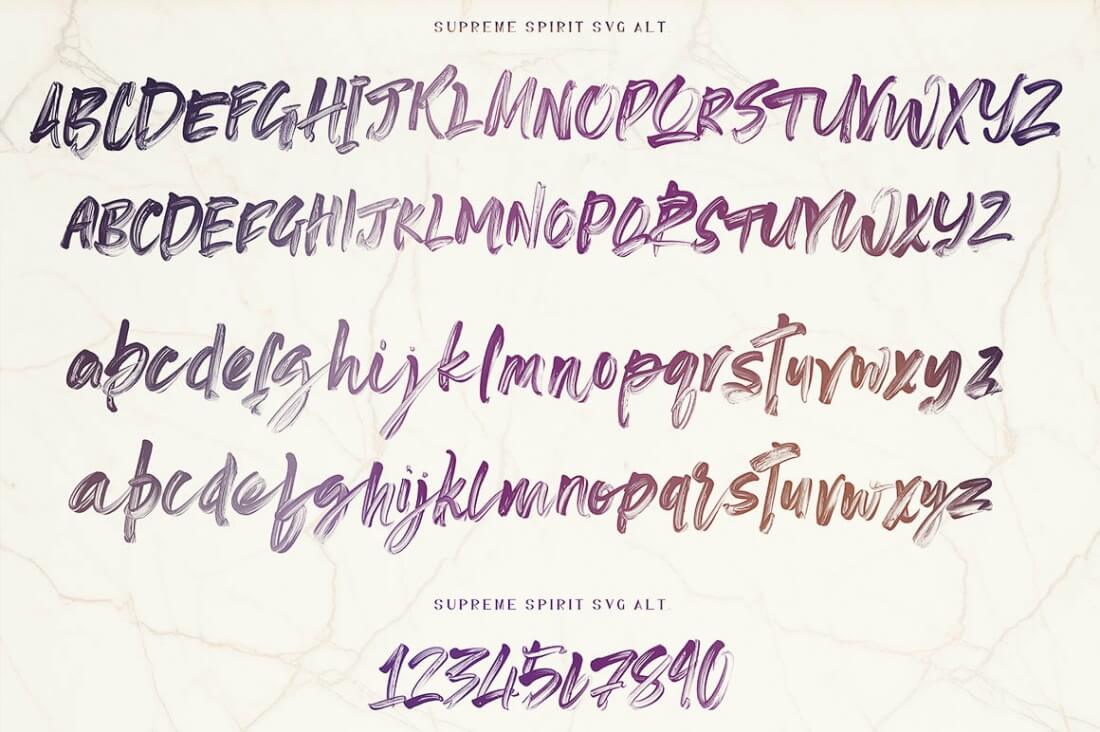 SUPREME SPIRIT SVG ALT.
ABCDEFGHIJKLMNOPQRSTUVWXYZ
ABCDEFGHIJKLMNOPQRSTUVWXYZ
abcdefghijklmnopqrstuvwxyz
abcdefghijklmnopqrstuvwxyz
SUPREME SPIRIT SVG ALT.
1234567890